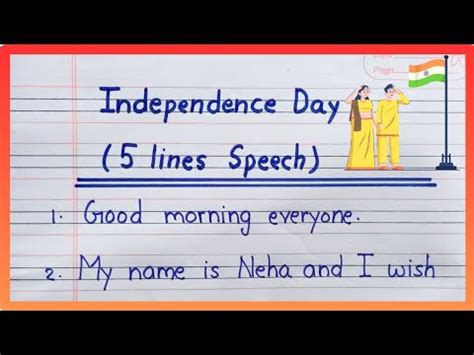 Page
Independence Day
(5 lines Speech)
1. Good morning everyone.
2. My name is Neha and I wish